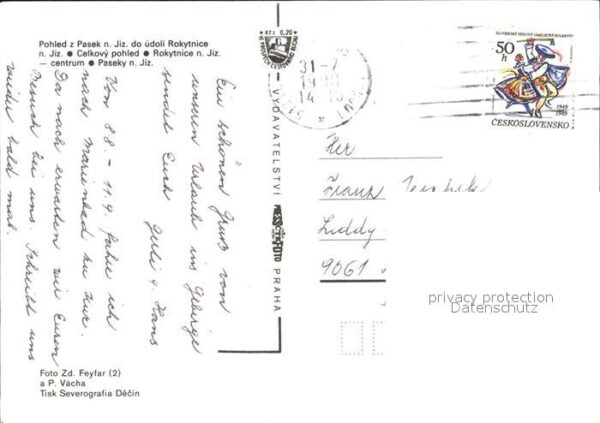 Pohled z Pasek n. Jiz. do údolí Rokytnice
n. Jiz. ● Celkový pohled ● Rokytnice n. Jiz.
— centrum ● Paseky n. Jiz.
Ein schönen Gruß vom
unseren Urlaub ins Gebirge
sendet Euch
Juli u. Hans
Vom 8.8 - 11.9. fahre ich
nach Marienbad zu Kur.
Da nach erwarten wir Euren
Besuch bei uns. Schreibt uns
wieder bald mal.
Foto Zd. Feyfar (2)
a P. Vácha
Tisk Severografia Děčín
Kčs 0,20
VYDAVATELSTVÍ
PRESSFOTO
PRAHA
31.-7
14
SLOVENSKÉ ĽUDOVÉ UMELECKÉ KOLEKTÍVY
50
h
1949
1989
ČESKOSLOVENSKO
Her
Franz
Liddy
9061
privacy protection
Datenschutz